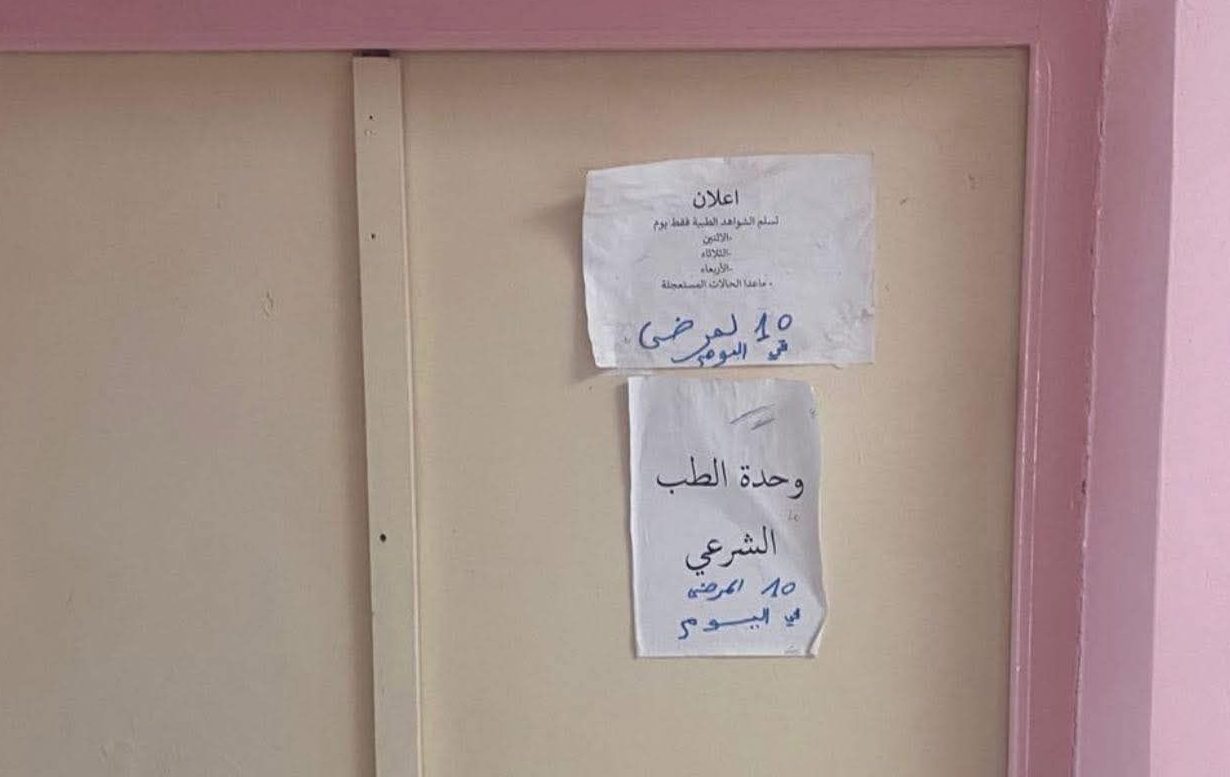 اعلان
تسلم الشواهد الطبية فقط يوم
-الاثنين
-الثلاثاء
-الأربعاء
- ماعدا الحالات المستعجلة
10 لمرضى
في اليوم
وحدة الطب
الشرعي
10 المرضى
في اليوم